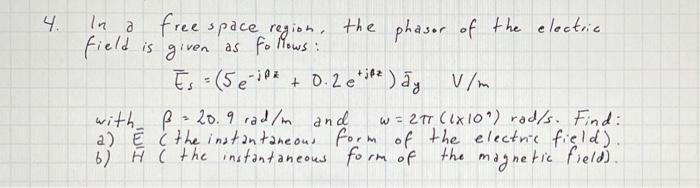 4. In a free space region, the phasor of the electric
field is given as follows:
Ēs = (5 e^-jβz + 0.2 e^+jβz) āy V/m
with β = 20.9 rad/m and ω = 2π (1x10⁹) rad/s. Find:
a) Ē (the instantaneous form of the electric field).
b) H̄ (the instantaneous form of the magnetic field).